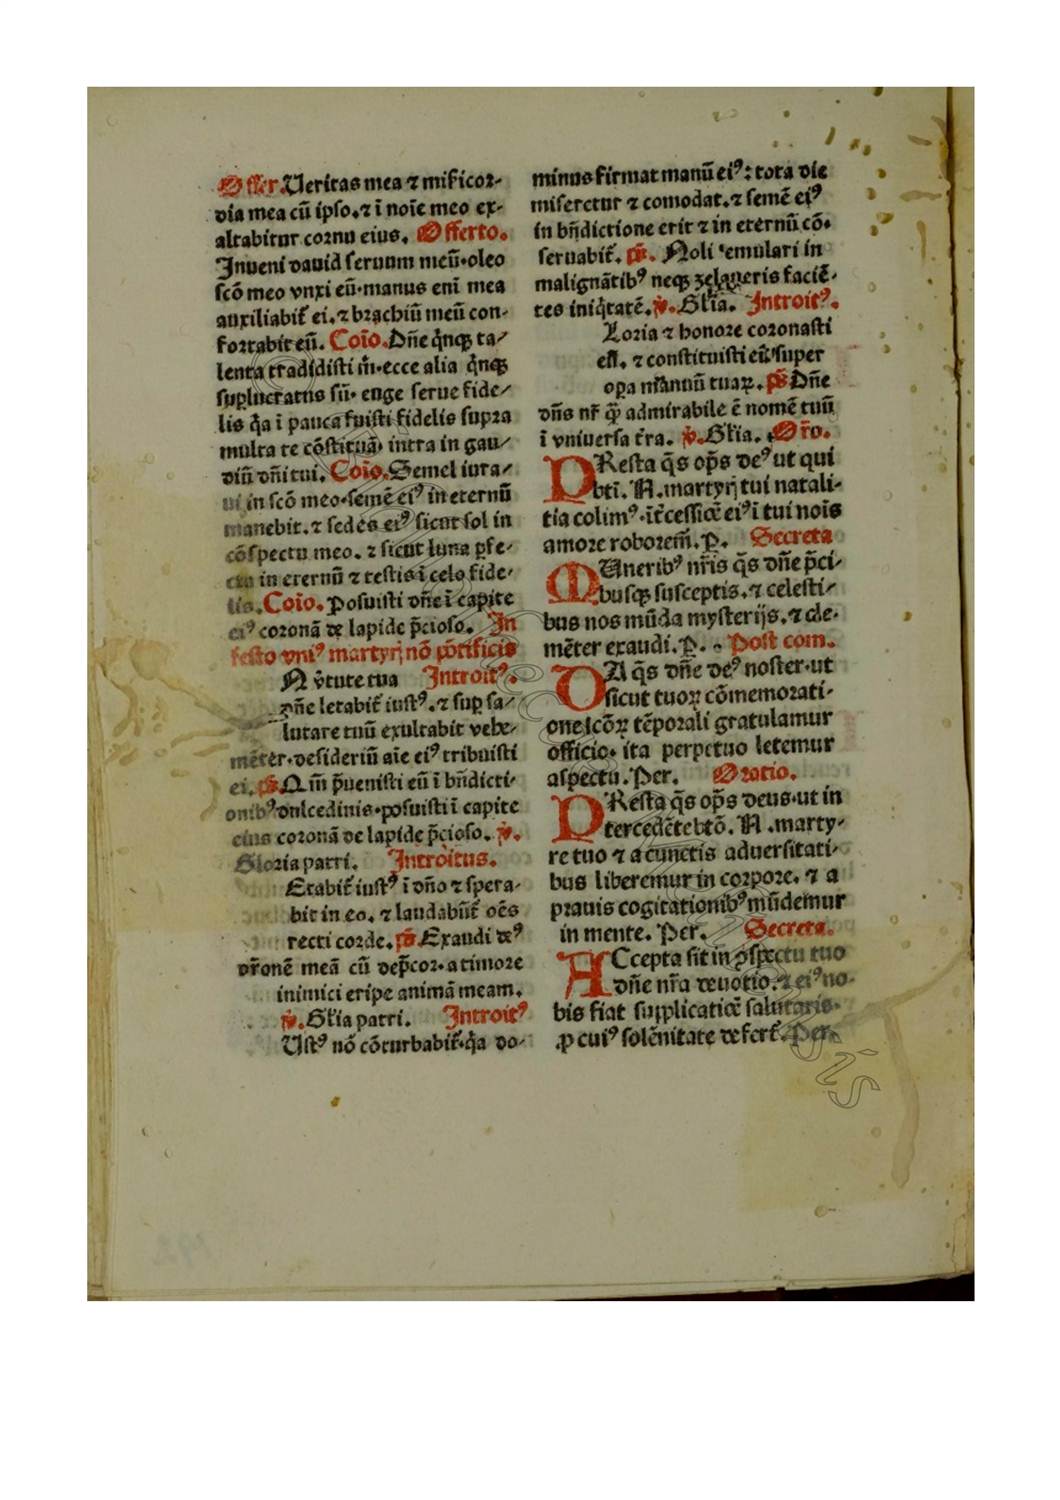 Offer. Ueritas mea ⁊ mīſicoꝛ-
dia mea cū ipſo. ⁊ ī noīe meo ex-
altabitur coꝛnu eius. Offerto.
Inueni dauid ſeruum meū. oleo
ſcō meo vnxi eū. manus enī mea
auxiliabiť ei. ⁊ bꝛachiū meū con-
foꝛtabit eū. Coīo. Dn̄e q̇nqꝫ ta-
lenta tradidiſti m̄. ecce alia q̇nqꝫ
ſuꝑlucratus ſū. euge ſerue fide-
lis q̇a ī pauca fuiſti fidelis ſupra
multa te cōſtituā. intra in gau-
diū dn̄i tui. Coīo. Semel iura-
ui in ſcō meo. ſemē eiꝰ in eternū
manebit. ⁊ ſedes eiꝰ ſicut ſol in
cōſpectu meo. ⁊ ſicut luna ꝑfe-
cta in eternū ⁊ teſtis ī celo fide-
lis. Coīo. Poſuiſti dn̄e ī capite
eiꝰ coꝛonā de lapide p̄cioſo. In
feſto vniꝰ martyrꝭ nō pōtificis
N v̇tute tua Introitꝰ.
dn̄e letabiť iuſtꝰ. ⁊ ſuꝑ ſa-
lutare tuū exultabit vehe-
mēter. deſideriū aīe eiꝰ tribuiſti
ei. pš. Q m̄ p̄ueniſti eū ī bn̄dicti-
onibꝰ dulcedinis. poſuiſti ī capite
eius coꝛonā de lapide p̄cioſo. v̇.
Gloꝛia patri. Introitus.
Etabiť iuſtꝰ ī dn̄o ⁊ ſpera-
bit in eo. ⁊ laudabūť oēs
recti coꝛde. pš. Exaudi deꝰ
oꝛ̄onē meā cū dep̄coꝛ. a timoꝛe
inimici eripe animā meam.
v̇. Gľia patri. Introitꝰ
Uſtꝰ nō cōturbabiť. q̇a do-
minus firmat manū eiꝰ: tota die
miſeretur ⁊ comodat. ⁊ ſemē eiꝰ
in bn̄dictione erit ⁊ in eternū cō-
ſeruabiť. pš. Noli emulari in
malignātibꝰ neqꝫ zelaueris faciē-
tes iniq̇tatē. v̇. Gľia. Introitꝰ.
Loꝛia ⁊ honoꝛe coꝛonaſti
eū. ⁊ conſtituiſti eū ſuper
oꝑa manuū tuaꝝ. pš. Dn̄e
dn̄s nr̄ q̄ admirabile ē nomē tuū
ī vniuerſa ťra. v̇. Gľia. Oꝛ̄o.
PReſta q̄s op̄s deꝰ ut qui
btī. N. martyrꝭ tui natali-
tia colimꝰ. īťceſſiōe eiꝰ ī tui noīs
amoꝛe roboꝛem̄. P. Secreta
MUneribꝰ nr̄is q̄s dn̄e p̄ci-
buſqꝫ ſuſceptis. ⁊ celeſti-
bus nos mūda myſterijs. ⁊ cle-
mēter exaudi. P. Poſt com.
DA q̄s dn̄e deꝰ noſter. ut
ſicut tuoꝝ cōmemoꝛati-
one ſcōꝝ tēpoꝛali gratulamur
officio. ita perpetuo letemur
aſpectu. Per. Oꝛatio.
PReſta q̄s op̄s deus. ut in
tercedēte btō. N. marty-
re tuo ⁊ a cunctis aduerſitati-
bus liberemur in coꝛpoꝛe. ⁊ a
pꝛauis cogitationibꝰ mūdemur
in mente. Per. Secreta.
ACcepta ſit in ꝯſpectu tuo
dn̄e nr̄a deuotio. ⁊ eiꝰ no-
bis fiat ſupplicatiōe ſalutaris.
ꝓ cuiꝰ ſolēnitate deferť. Per.